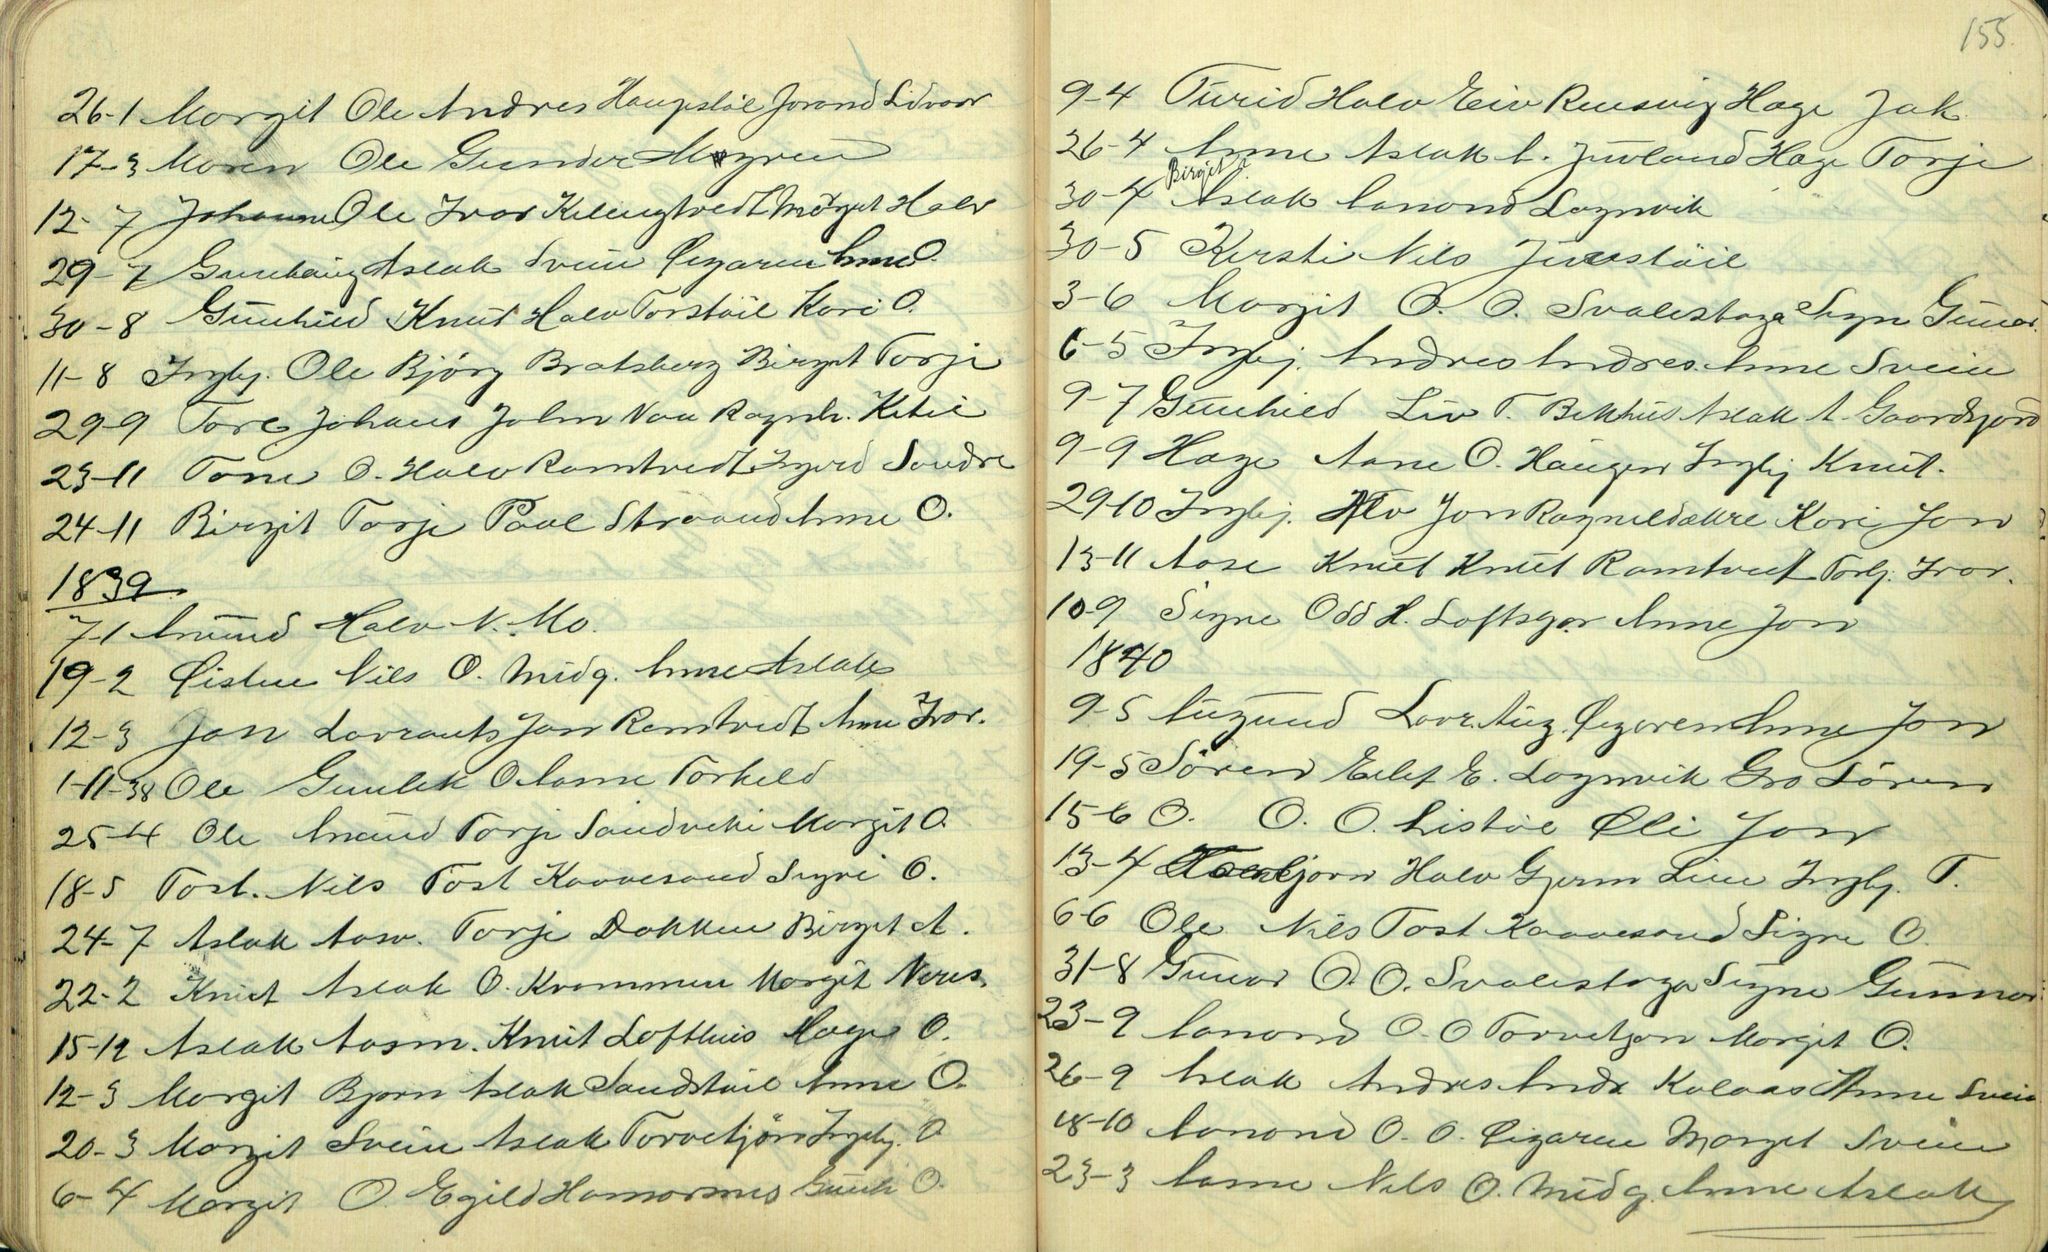 26-1 Margit Ole Andres Haupstöil Jorond Lidvaar
17-3 Maren Ole Gunder
12-7 Johanne Ole Ivar Kilengtvedt Margit Halv
29-7 Gunhaug Aslak Svein Öigaren Anne O.
30-8 Gunhild Knut Halv Torstöil Kari O.
11-8 Ingbj. Ole Bjørg Bratsberg Birgit Torje
29-9 Tore Johans John Vaa Ragnh. Ketil
23-11 Tone O. Halv Ramtvedt Ingerd Sondre
24-11 Birgit Torje Paal Straand Anne O.
1839
7-1 Amund Halv N. Mo.
19-2 Øisten Nils O. Midg. Anne Aslak
12-3 Jon Lavrants Jon Ramtvedt Anne Ivar.
1-11-38 Ole Gunlek O. Aasne Torkeld
25-4 Ole Amund Torje Sandveki Margit O.
18-5 Tost. Nils Tost Kaavesand Signe O.
24-7 Aslak Aasm. Torje Dokken Birgit A.
22-2 Knut Aslak O. Krommen Margit
15-12 Aslak Aasm. Knut Lofthus Hæge O.
12-3 Margit Bjørn Aslak Sandstöil Anne O.
20-3 Margit Svein Aslak Torvetjøn Ingebj. O
6-4 Margit O. Egild Hamarsnes Gunh O.
155.
9-4 Turid Halv Eiv Reusvig Hæge Jak.
26-4 Anne Aslak A. Juvland Hæge Torje
Birgit
30-4 Aslak Aanond Lognvik
30-5 Kirsti Nils Juvstöil
3-6 Margit O. O. Svalestoga Sign Gunar.
6-5 Ingbj. Andres Andres. Anne Svein
9-7 Gunhild Liv T. Bekhus Aslak A. Gaardsjord
9-9 Hæge Aane O. Haugen Ingbj Knut.
29-10 Ingbj. Alv Jon Ragnildakre Kari Jon
13-11 Aase Knut Knut Ramtveit Torbj. Ivar.
10-9 Signe Odd H. Loftsgar Anne Jon
1840
9-5 Augund Lavr. Aug. Øygaren Anne Jon
19-5 Søren Eilef E. Lognvik Gro Søren
15-6 O. O. O. Listöl Øli Jon
13-4 Torbjørn Halv Gjerm Lien Ingbj. T.
6-6 Ole Nils Tost Kaavesand Signe O.
31-8 Gunar O. O. Svalestoga Signe Gunnar
23-9 Aanond O. O Torvetjøn Margit O.
26-9 Aslak Andres Andr Kolaas Anne Svein
18-10 Aanond O. O. Öigaren Margit Svein
23-3 Aasne Nils O. Midg. Anne Aslak